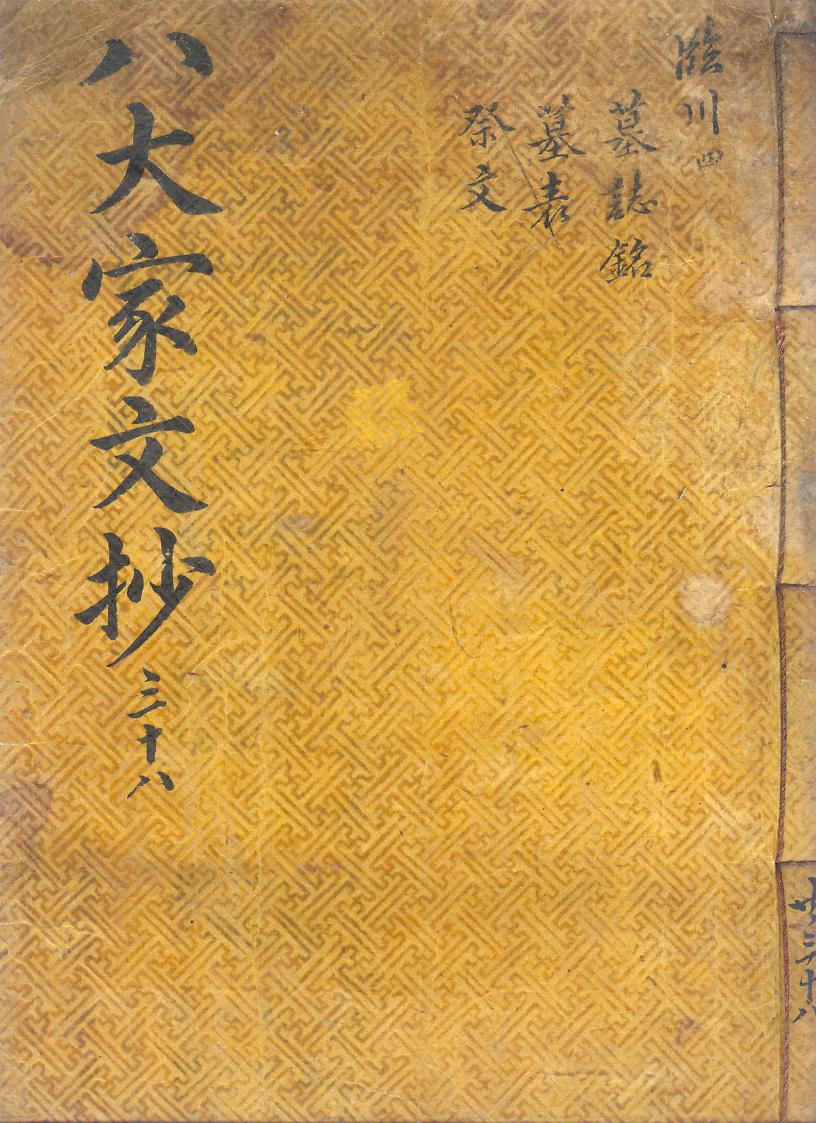 臨川四
墓誌銘
墓表
祭文
八大家文抄 三十八
共三十八